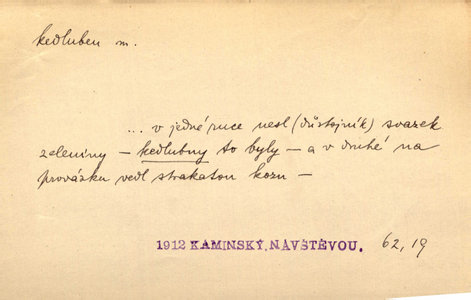 kedluben m.
... v jedné ruce nesl (důstojník) svazek
zeleniny — kedlubny to byly — a v druhé na
provázku vedl strakatou kozu —
1912 KAMINSKÝ, NAVŠTĚVOU. 62,19